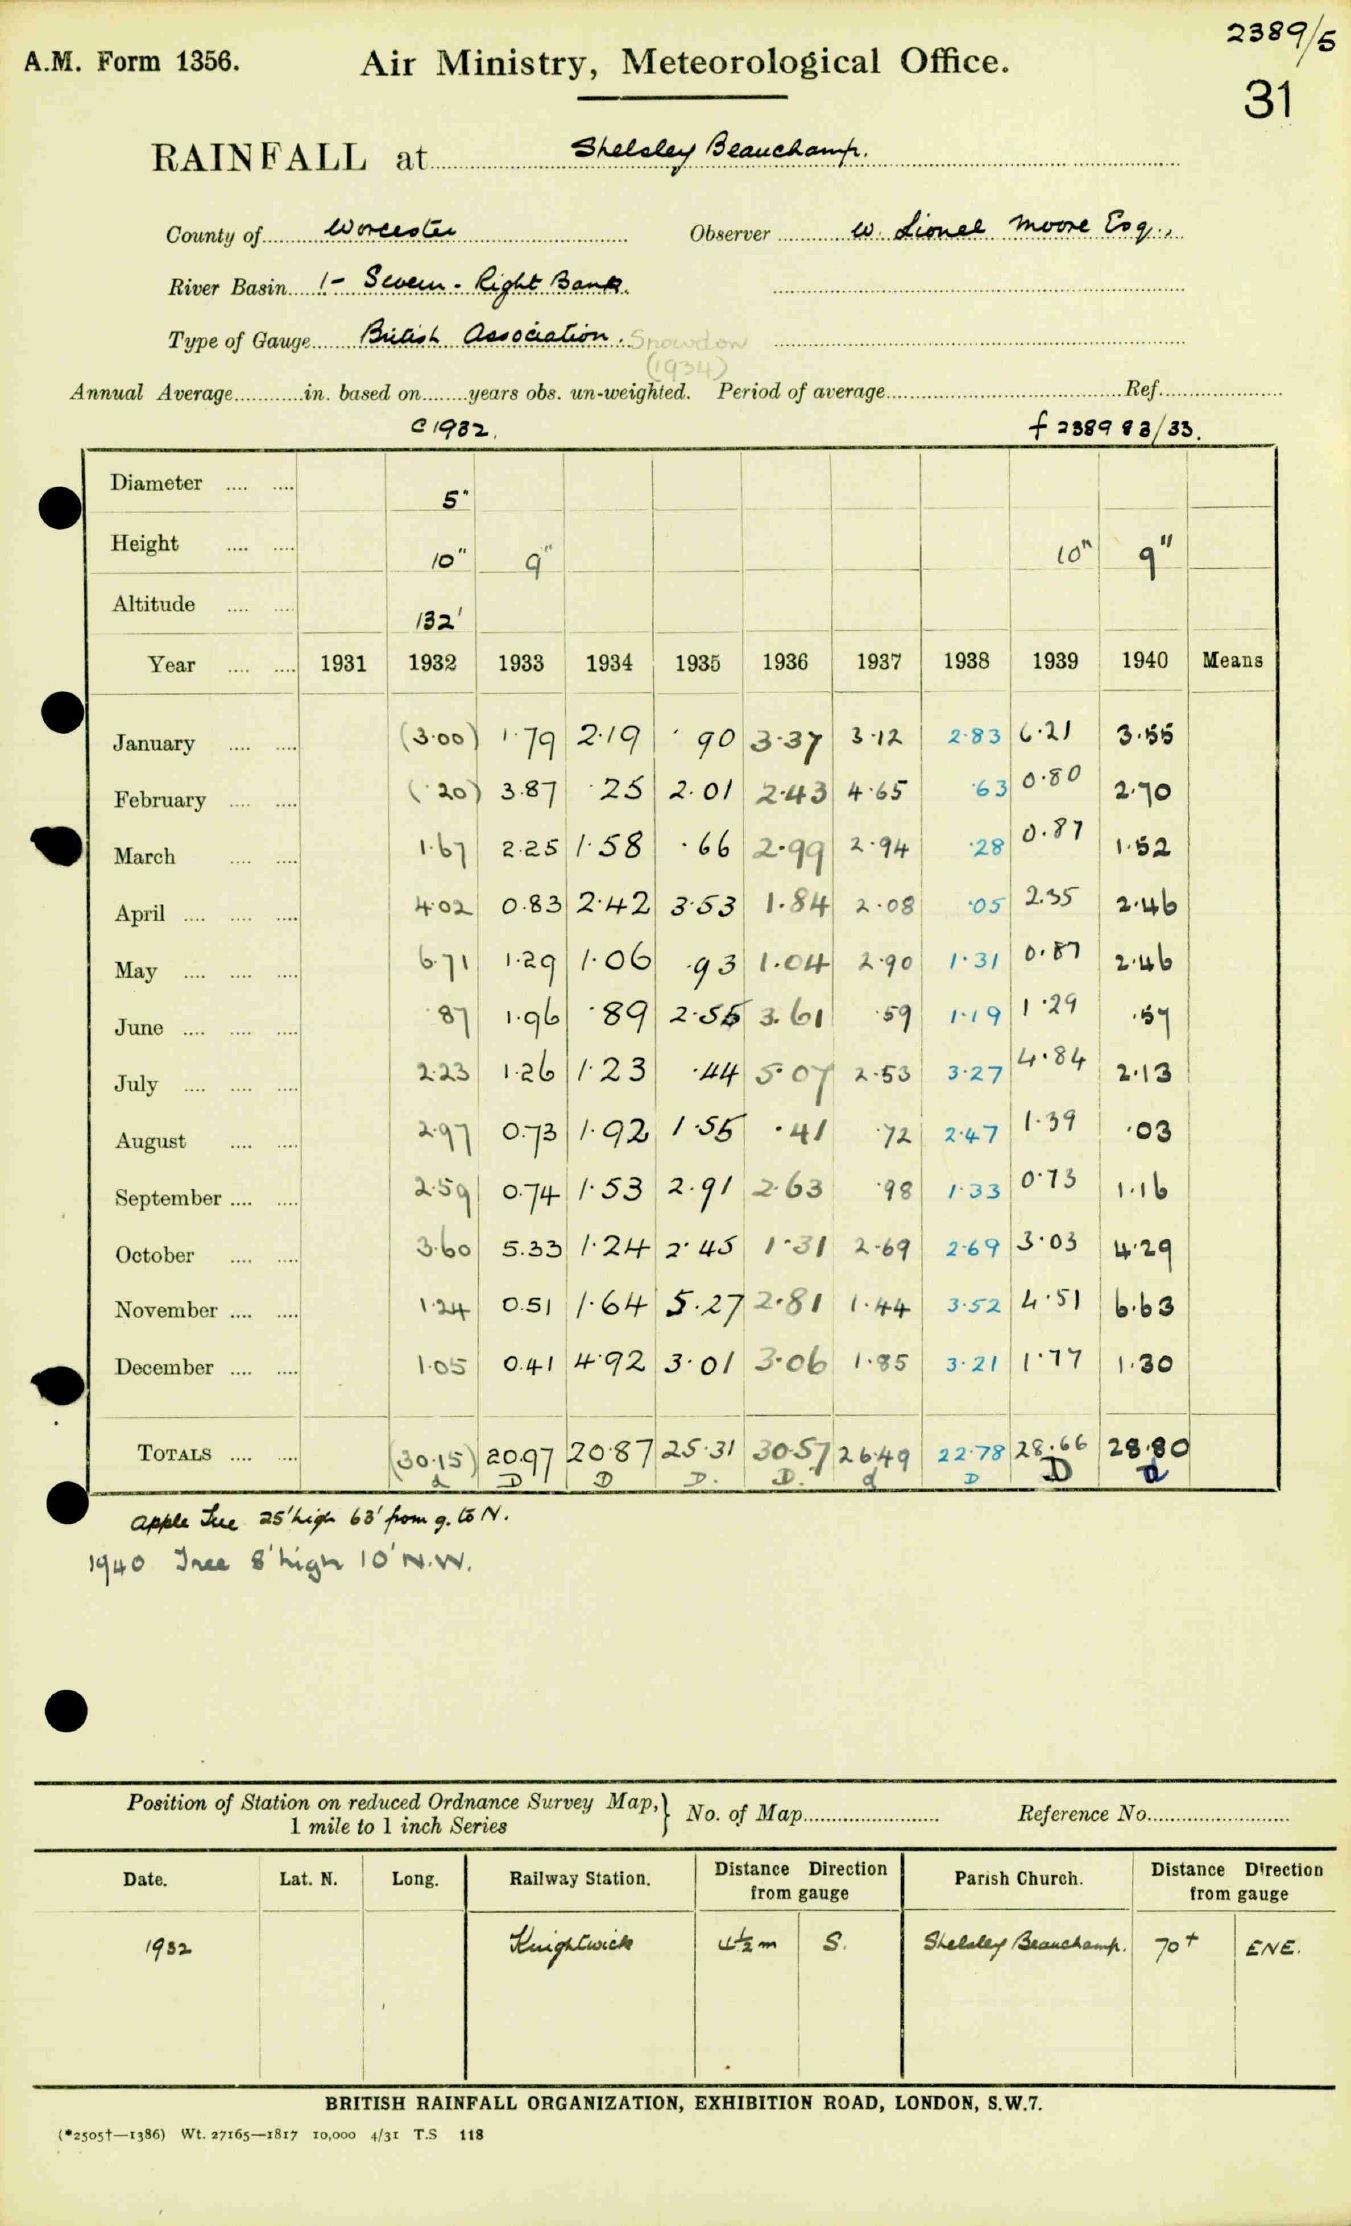 2389/5
A.M. Form 1356. Air Ministry, Meteorological Office.
31
RAINFALL at Shelsley Beauchamp.
County of Worcester Observer W. Lionel Moore Esq.,
River Basin 1- Severn - Right Bank.
Type of Gauge British Association. Snowdon
(1934)
Annual Average in. based on years obs. un-weighted. Period of average Ref.
C 1932. f 2389 83/33.
Diameter 5"
Height 10" 9" 10" 9"
Altitude 132'
Year 1931 1932 1933 1934 1935 1936 1937 1938 1939 1940 Means
January (3.00) 1.79 2.19 .90 3.37 3.12 2.83 6.21 3.55
February (.20) 3.87 .25 2.01 2.43 4.65 .63 0.80 2.70
March 1.67 2.25 1.58 .66 2.99 2.94 .28 0.87 1.52
April 4.02 0.83 2.42 3.53 1.84 2.08 .05 2.35 2.46
May 6.71 1.29 1.06 .93 1.04 2.90 1.31 0.87 2.46
June .87 1.96 .89 2.55 3.61 .59 1.19 1.29 .57
July 2.23 1.26 1.23 .44 5.07 2.53 3.27 4.84 2.13
August 2.97 0.73 1.92 1.55 .41 .72 2.47 1.39 .03
September 2.59 0.74 1.53 2.91 2.63 .98 1.33 0.73 1.16
October 3.60 5.33 1.24 2.45 1.31 2.69 2.69 3.03 4.29
November 1.24 0.51 1.64 5.27 2.81 1.44 3.52 4.51 6.63
December 1.05 0.41 4.92 3.01 3.06 1.85 3.21 1.77 1.30
TOTALS (30.15) 20.97 20.87 25.31 30.57 26.49 22.78 28.66 28.80
d D D D. D. d D D d
Apple Tree 25' high 63' from g. to N.
1940 Tree 8' high 10' N.W.
Position of Station on reduced Ordnance Survey Map, } No. of Map Reference No.
1 mile to 1 inch Series
Date. Lat. N. Long. Railway Station. Distance Direction from gauge Parish Church. Distance Direction from gauge
1932 Knightwick 4½ m S. Shelsley Beauchamp. 70+ ENE.
BRITISH RAINFALL ORGANIZATION, EXHIBITION ROAD, LONDON, S.W.7.
(*2505†—1386) Wt. 27165—1817 10,000 4/31 T.S 118